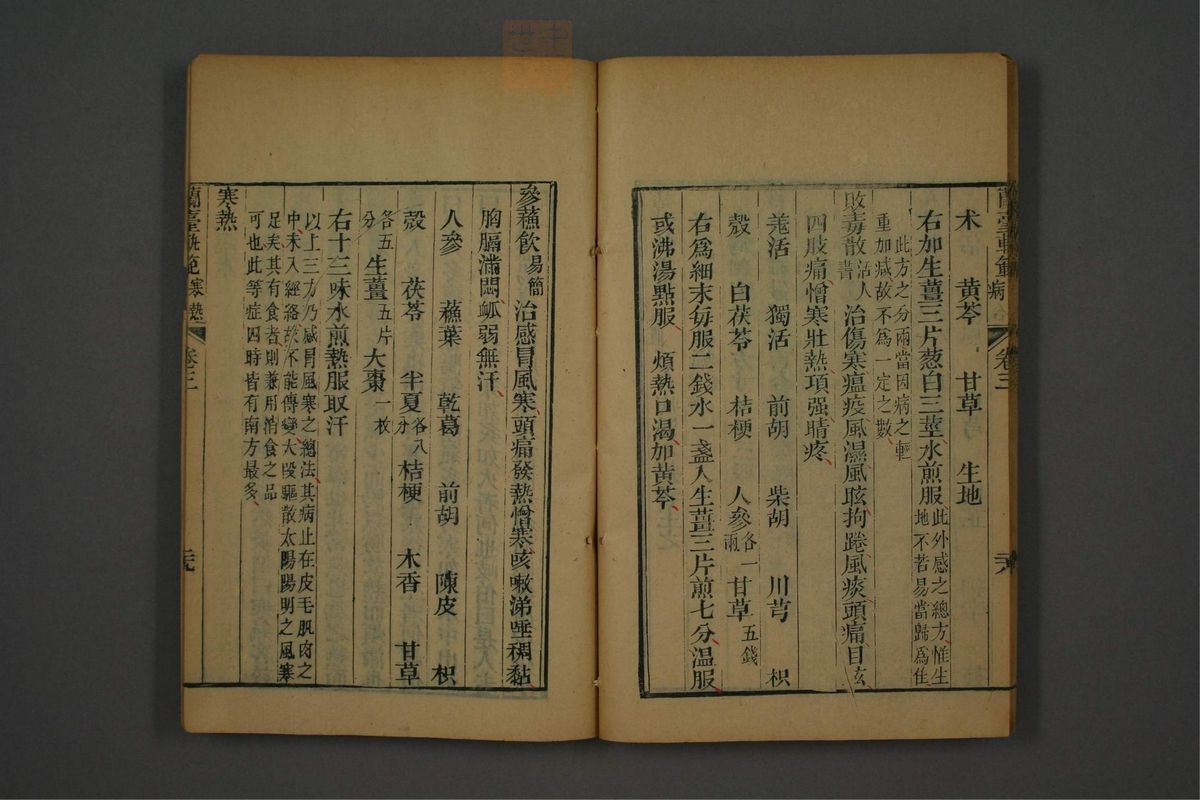 朮　黄芩　甘草　生地
右加生薑三片葱白三莖水煎服此外感之總方惟生
地不若易當歸爲佳
此方之分兩當因病之輕
重加减故不爲一定之數
敗毒散活人書　治傷寒瘟疫風濕風眩拘踡風痰頭痛目眩
四肢痛憎寒壯熱項强睛疼
羗活　獨活　前胡　柴胡　川芎　枳
殼　白茯苓　桔梗　人參各一兩　甘草五錢
右爲細末每服二錢水一盞入生薑三片煎七分温服
或沸湯點服　煩熱口渴加黄芩
蘭臺軌範　卷三
參蘓飲易簡　治感冒風寒頭痛發熱憎寒咳嗽涕唾稠黏
胸膈滿悶㼌弱無汗
人參　蘓葉　乾葛　前胡　陳皮　枳
殼　茯苓　半夏各八分　桔梗　木香　甘草
各五分　生薑五片　大棗一枚
右十三味水煎熱服取汗
以上三方乃感冒風寒之總法其病止在皮毛肌肉之
中未入經絡故不能傳變大段驅散太陽陽明之風寒
足矣其有食者則兼用消食之品
可也此等症四時皆有南方最多
寒熱
蘭臺軌範　寒熱　卷三